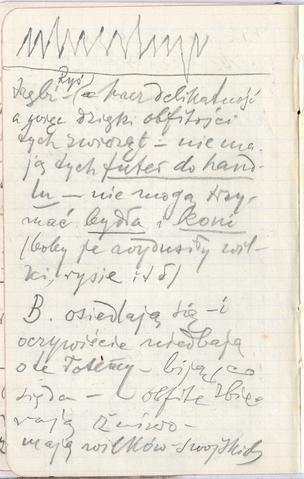 Ryś
trąbi — (a przez delikatność
a więc dzięki obfitości
tych zwierząt — nie ma-
ją tych futer do hand-
lu — nie mogą trzy-
mać bydła i koni
(boby je wydusiły wil-
ki, rysie itd)
B. osiedlają się — i
oczywiście niedbają
o te Totemy — biją, co
się da — obfite zbie-
rają żniwo —
mają wilków-swojskich